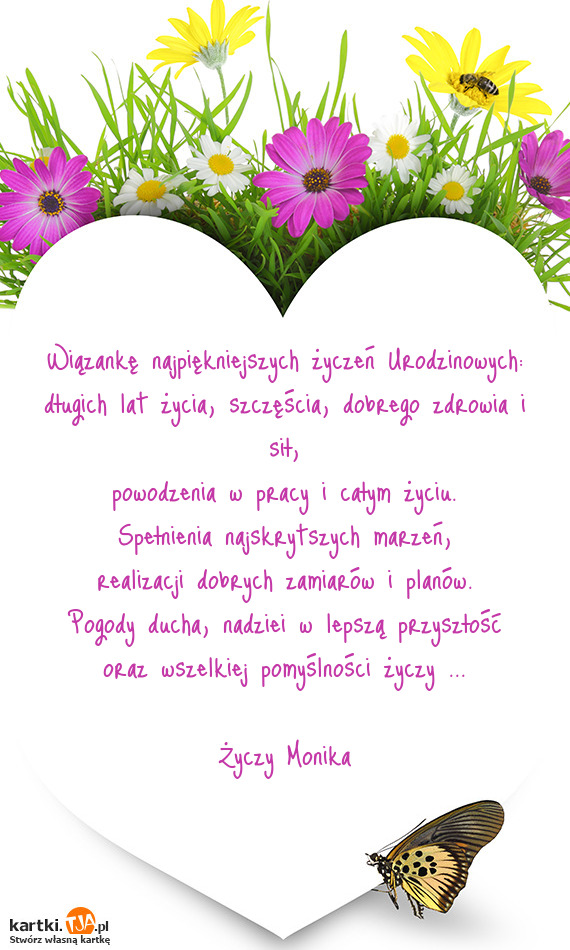 Wiązankę najpiękniejszych życzeń Urodzinowych:
długich lat życia, szczęścia, dobrego zdrowia i
sił,
powodzenia w pracy i całym życiu.
Spełnienia najskrytszych marzeń,
realizacji dobrych zamiarów i planów.
Pogody ducha, nadziei w lepszą przyszłość
oraz wszelkiej pomyślności życzy ...
Życzy Monika
kartki.TJA.pl
Stwórz własną kartkę